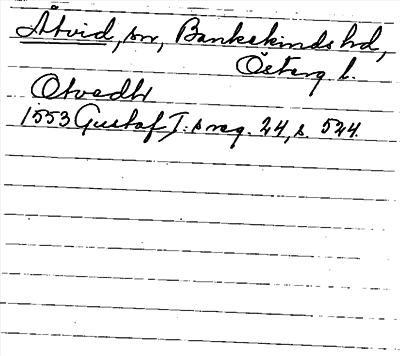 Åtvid, sn, Bankekinds hd,
Österg l.
Otvedh
1553 Gustaf I:s reg. 24, s. 524.